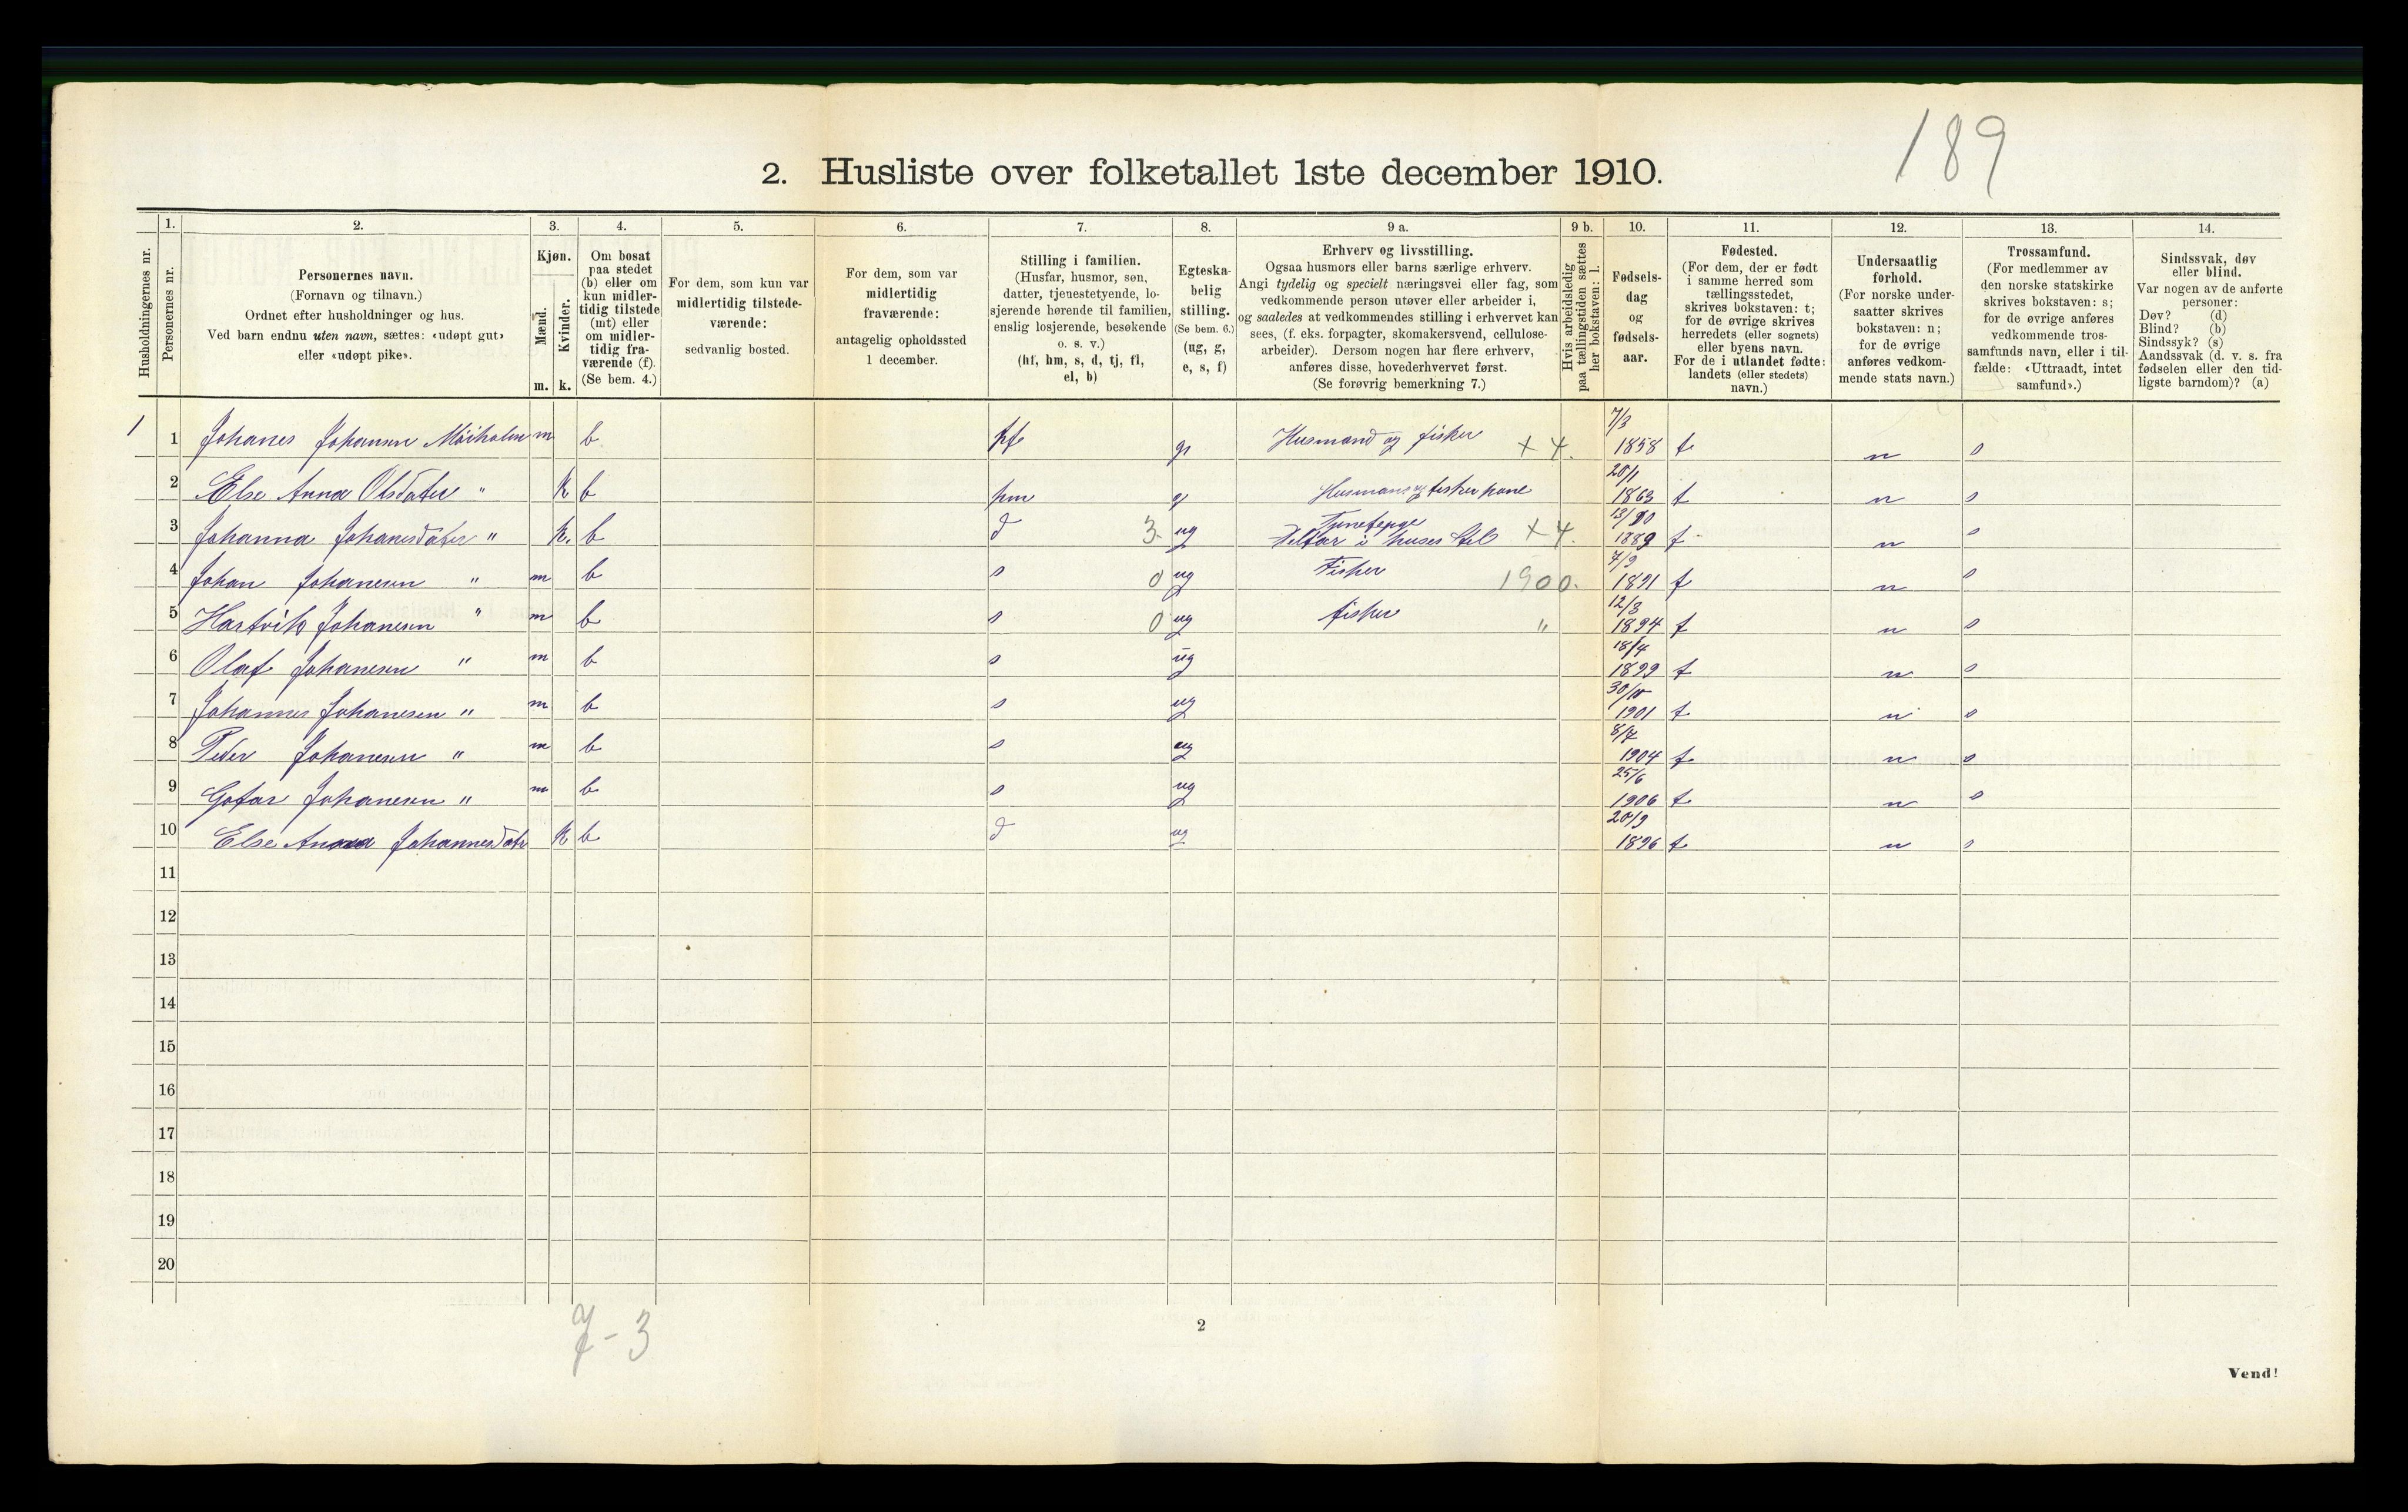 189
2. Husliste over folketallet 1ste december 1910.
Husholdningernes nr.
1. Personernes nr.
2. Personernes navn.
(Fornavn og tilnavn.)
Ordnet efter husholdninger og hus.
Ved barn endnu uten navn, sættes: «udøpt gut»
eller «udøpt pike».
3. Kjøn.
Mænd. Kvinder.
m. k.
4. Om bosat
paa stedet
(b) eller om
kun midler-
tidig tilstede
(mt) eller
om midler-
tidig fra-
værende (f).
(Se bem. 4.)
5. For dem, som kun var
midlertidig tilstede-
værende:
sedvanlig bosted.
6. For dem, som var
midlertidig
fraværende:
antagelig opholdssted
1 december.
7. Stilling i familien.
(Husfar, husmor, søn,
datter, tjenestetyende, lo-
sjerende hørende til familien,
enslig losjerende, besøkende
o. s. v.)
(hf, hm, s, d, tj, fl,
el, b)
8. Egteska-
belig
stilling.
(Se bem. 6.)
(ug, g,
e, s, f)
9 a. Erhverv og livsstilling.
Ogsaa husmors eller barns særlige erhverv.
Angi tydelig og specielt næringsvei eller fag, som
vedkommende person utøver eller arbeider i,
og saaledes at vedkommendes stilling i erhvervet kan
sees, (f. eks. forpagter, skomakersvend, cellulose-
arbeider). Dersom nogen har flere erhverv,
anføres disse, hovederhvervet først.
(Se forøvrig bemerkning 7.)
9 b. Hvis arbeidsledig
paa tællingstiden sættes
her bokstaven: l.
10. Fødsels-
dag
og
fødsels-
aar.
11. Fødested.
(For dem, der er født
i samme herred som
tællingsstedet,
skrives bokstaven: t;
for de øvrige skrives
herredets (eller sognets)
eller byens navn.
For de i utlandet fødte:
landets (eller stedets)
navn.)
12. Undersaatlig
forhold.
(For norske under-
saatter skrives
bokstaven: n;
for de øvrige
anføres vedkom-
mende stats navn.)
13. Trossamfund.
(For medlemmer av
den norske statskirke
skrives bokstaven: s;
for de øvrige anføres
vedkommende tros-
samfunds navn, eller i til-
fælde: «Uttraadt, intet
samfund».)
14. Sindssvak, døv
eller blind.
Var nogen av de anførte
personer:
Døv? (d)
Blind? (b)
Sindssyk? (s)
Aandssvak (d. v. s. fra
fødselen eller den tid-
ligste barndom)? (a)
1 1 Johanes Johansen Möiholm m b hf g Husmand og fisker + 4. 7/3 1858 t n s
2 Else Anna Olsdater " k b hm g Husmans og fisker kone 20/1 1863 t n s
3 Johanna Johanesdater " k. b d 3 ug i huses stel + 4. 1889 t n s
4 Johan Johanesen " m b s 0 ug Fisker 1900. 7/9 1891 t n s
5 Hartvik Johanesen " m b s 0 ug fisker " 12/3 1894 t n s
6 Olaf Johanesen " m b s ug 18/4 1899 t n s
7 Johannes Johanesen " m b s ug 30/10 1901 t n s
8 Peder Johanesen " m b s ug 8/7 1904 t n s
9 Gotar Johanesen " m b s ug 25/6 1906 t n s
10 Else Anna Johannesdatr k b d ug 20/9 1896 t n s
11
12
13
14
15
16
17
18
19
20
7-3
2
Vend!